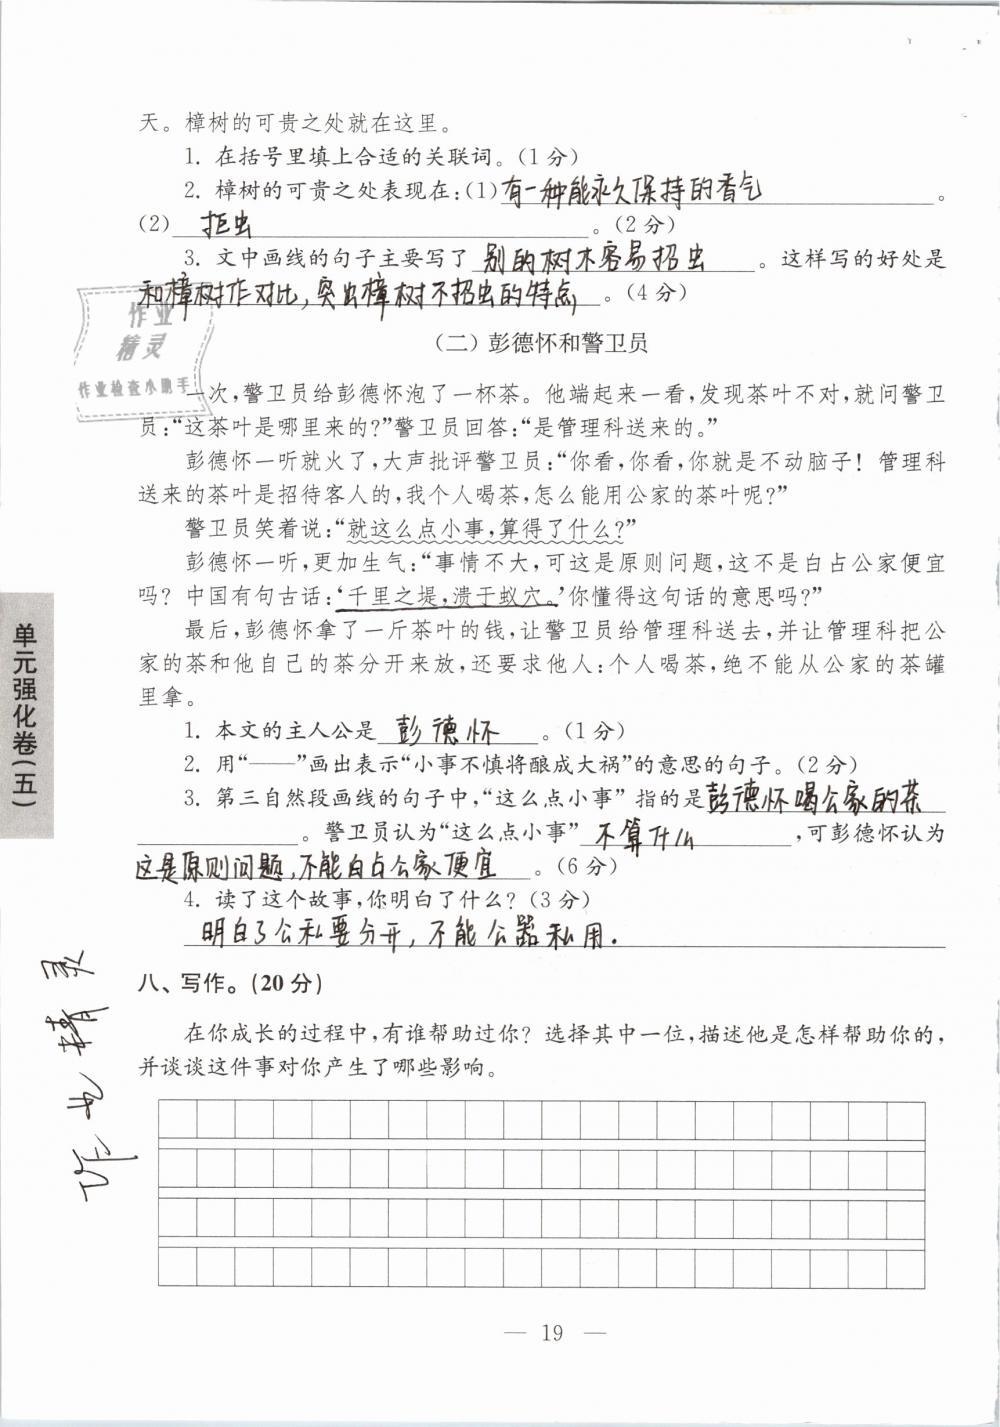 天。樟树的可贵之处就在这里。
1. 在括号里填上合适的关联词。(1分)
2. 樟树的可贵之处表现在:(1)有一种能永久保持的香气。
(2) 拒虫 。(2分)
3. 文中画线的句子主要写了 别的树木容易招虫 。这样写的好处是
和樟树作对比,突出樟树不招虫的特点。(4分)
作业
精灵
作业检查小助手
(二) 彭德怀和警卫员
一次,警卫员给彭德怀泡了一杯茶。他端起来一看,发现茶叶不对,就问警卫
员:“这茶叶是哪里来的?”警卫员回答:“是管理科送来的。”
彭德怀一听就火了,大声批评警卫员:“你看,你看,你就是不动脑子! 管理科
送来的茶叶是招待客人的,我个人喝茶,怎么能用公家的茶叶呢?”
警卫员笑着说:“就这么点小事,算得了什么?”
彭德怀一听,更加生气:“事情不大,可这是原则问题,这不是白占公家便宜
吗? 中国有句古话:‘千里之堤,溃于蚁穴。’你懂得这句话的意思吗?”
最后,彭德怀拿了一斤茶叶的钱,让警卫员给管理科送去,并让管理科把公
家的茶和他自己的茶分开来放,还要求他人:个人喝茶,绝不能从公家的茶罐
里拿。
1. 本文的主人公是 彭德怀 。(1分)
2. 用“——”画出表示“小事不慎将酿成大祸”的意思的句子。(2分)
3. 第三自然段画线的句子中,“这么点小事” 指的是彭德怀喝公家的茶
。警卫员认为“这么点小事” 不算什么 ,可彭德怀认为
这是原则问题,不能白占公家便宜 。(6分)
4. 读了这个故事,你明白了什么? (3分)
明白了公私要分开,不能公器私用.
八、写作。(20分)
在你成长的过程中,有谁帮助过你? 选择其中一位,描述他是怎样帮助你的,
并谈谈这件事对你产生了哪些影响。
单元强化卷(五)
作业精灵
— 19 —